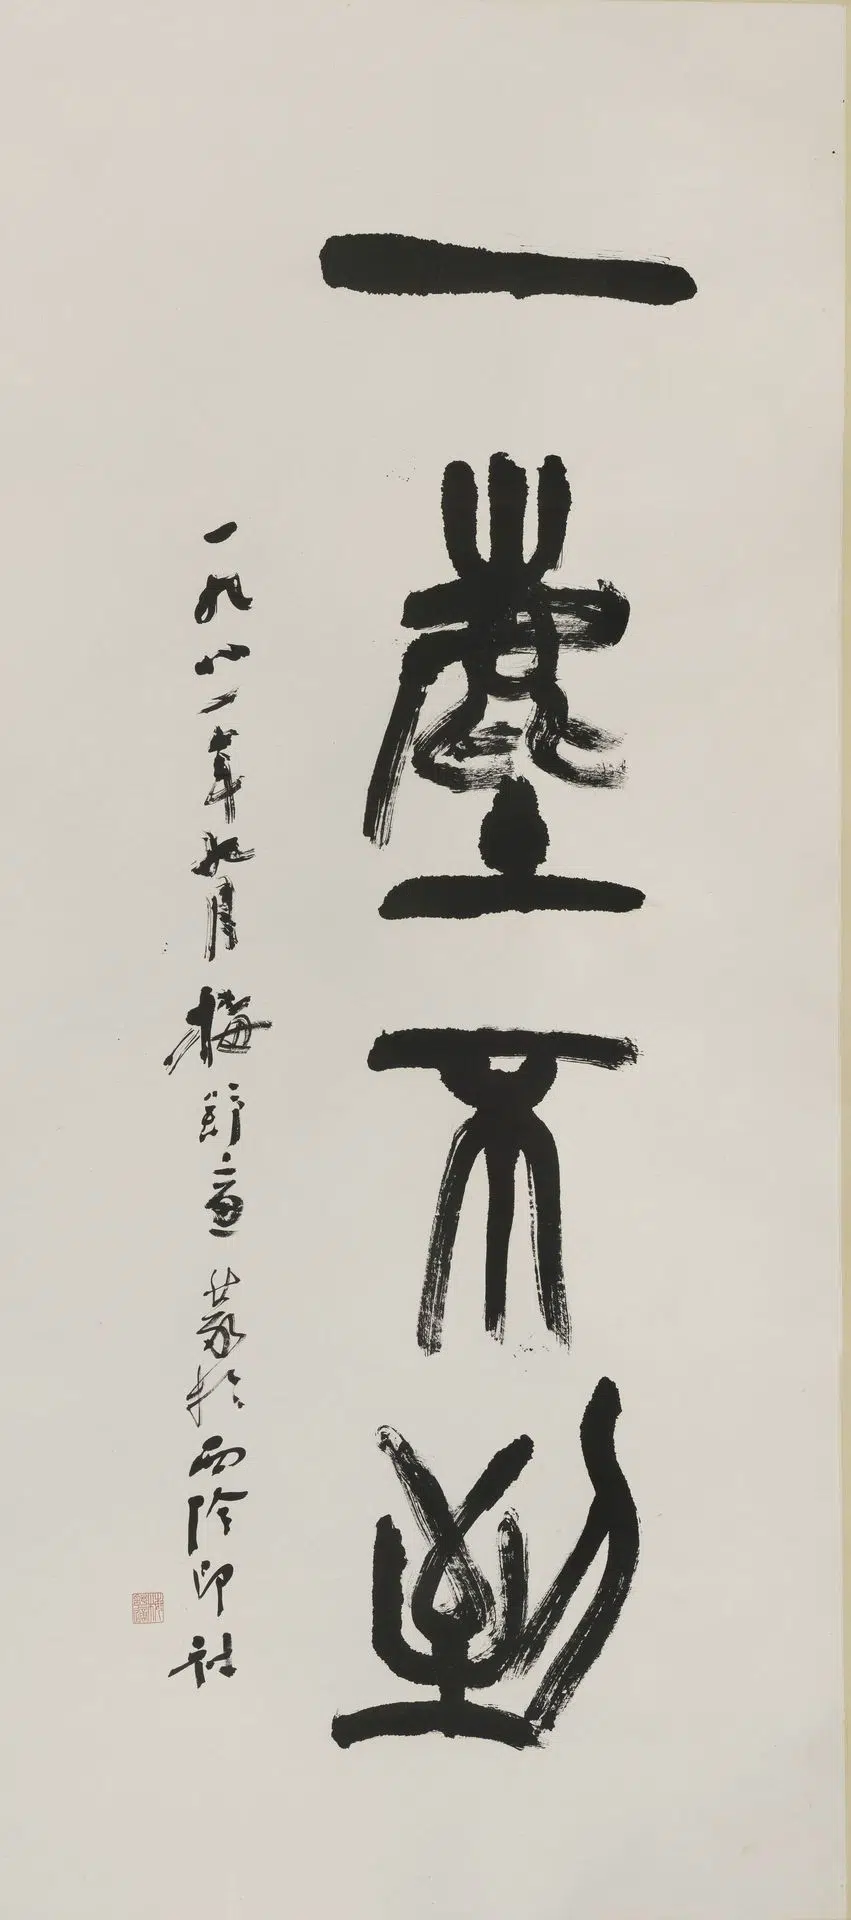 一塵不到
一九八一年九月梅舒適篆於西泠印社